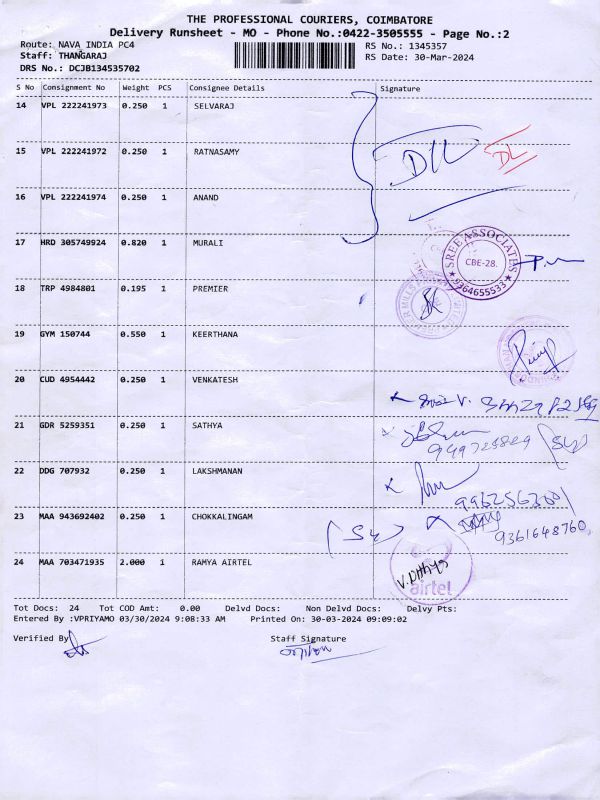 THE PROFESSIONAL COURIERS, COIMBATORE
Delivery Runsheet - MO - Phone No.:0422-3505555 - Page No.:2
Route: NAVA INDIA PC4 RS No.: 1345357
Staff: THANGARAJ RS Date: 30-Mar-2024
DRS No.: DCJB134535702
S No Consignment No Weight PCS Consignee Details Signature
14 VPL 222241973 0.250 1 SELVARAJ
DL
15 VPL 222241972 0.250 1 RATNASAMY
16 VPL 222241974 0.250 1 ANAND
17 HRD 305749924 0.820 1 MURALI
SREE ASSOCIATES
CBE-28.
9364655533
18 TRP 4984801 0.195 1 PREMIER
19 GYM 150744 0.550 1 KEERTHANA
20 CUD 4954442 0.250 1 VENKATESH
21 GDR 5259351 0.250 1 SATHYA
22 DDG 707932 0.250 1 LAKSHMANAN
23 MAA 943692402 0.250 1 CHOKKALINGAM
9361648760
24 MAA 703471935 2.000 1 RAMYA AIRTEL
airtel
Tot Docs: 24 Tot COD Amt: 0.00 Delvd Docs: Non Delvd Docs: Delvy Pts:
Entered By :VPRIYAMO 03/30/2024 9:08:33 AM Printed On: 30-03-2024 09:09:02
Verified By Staff Signature